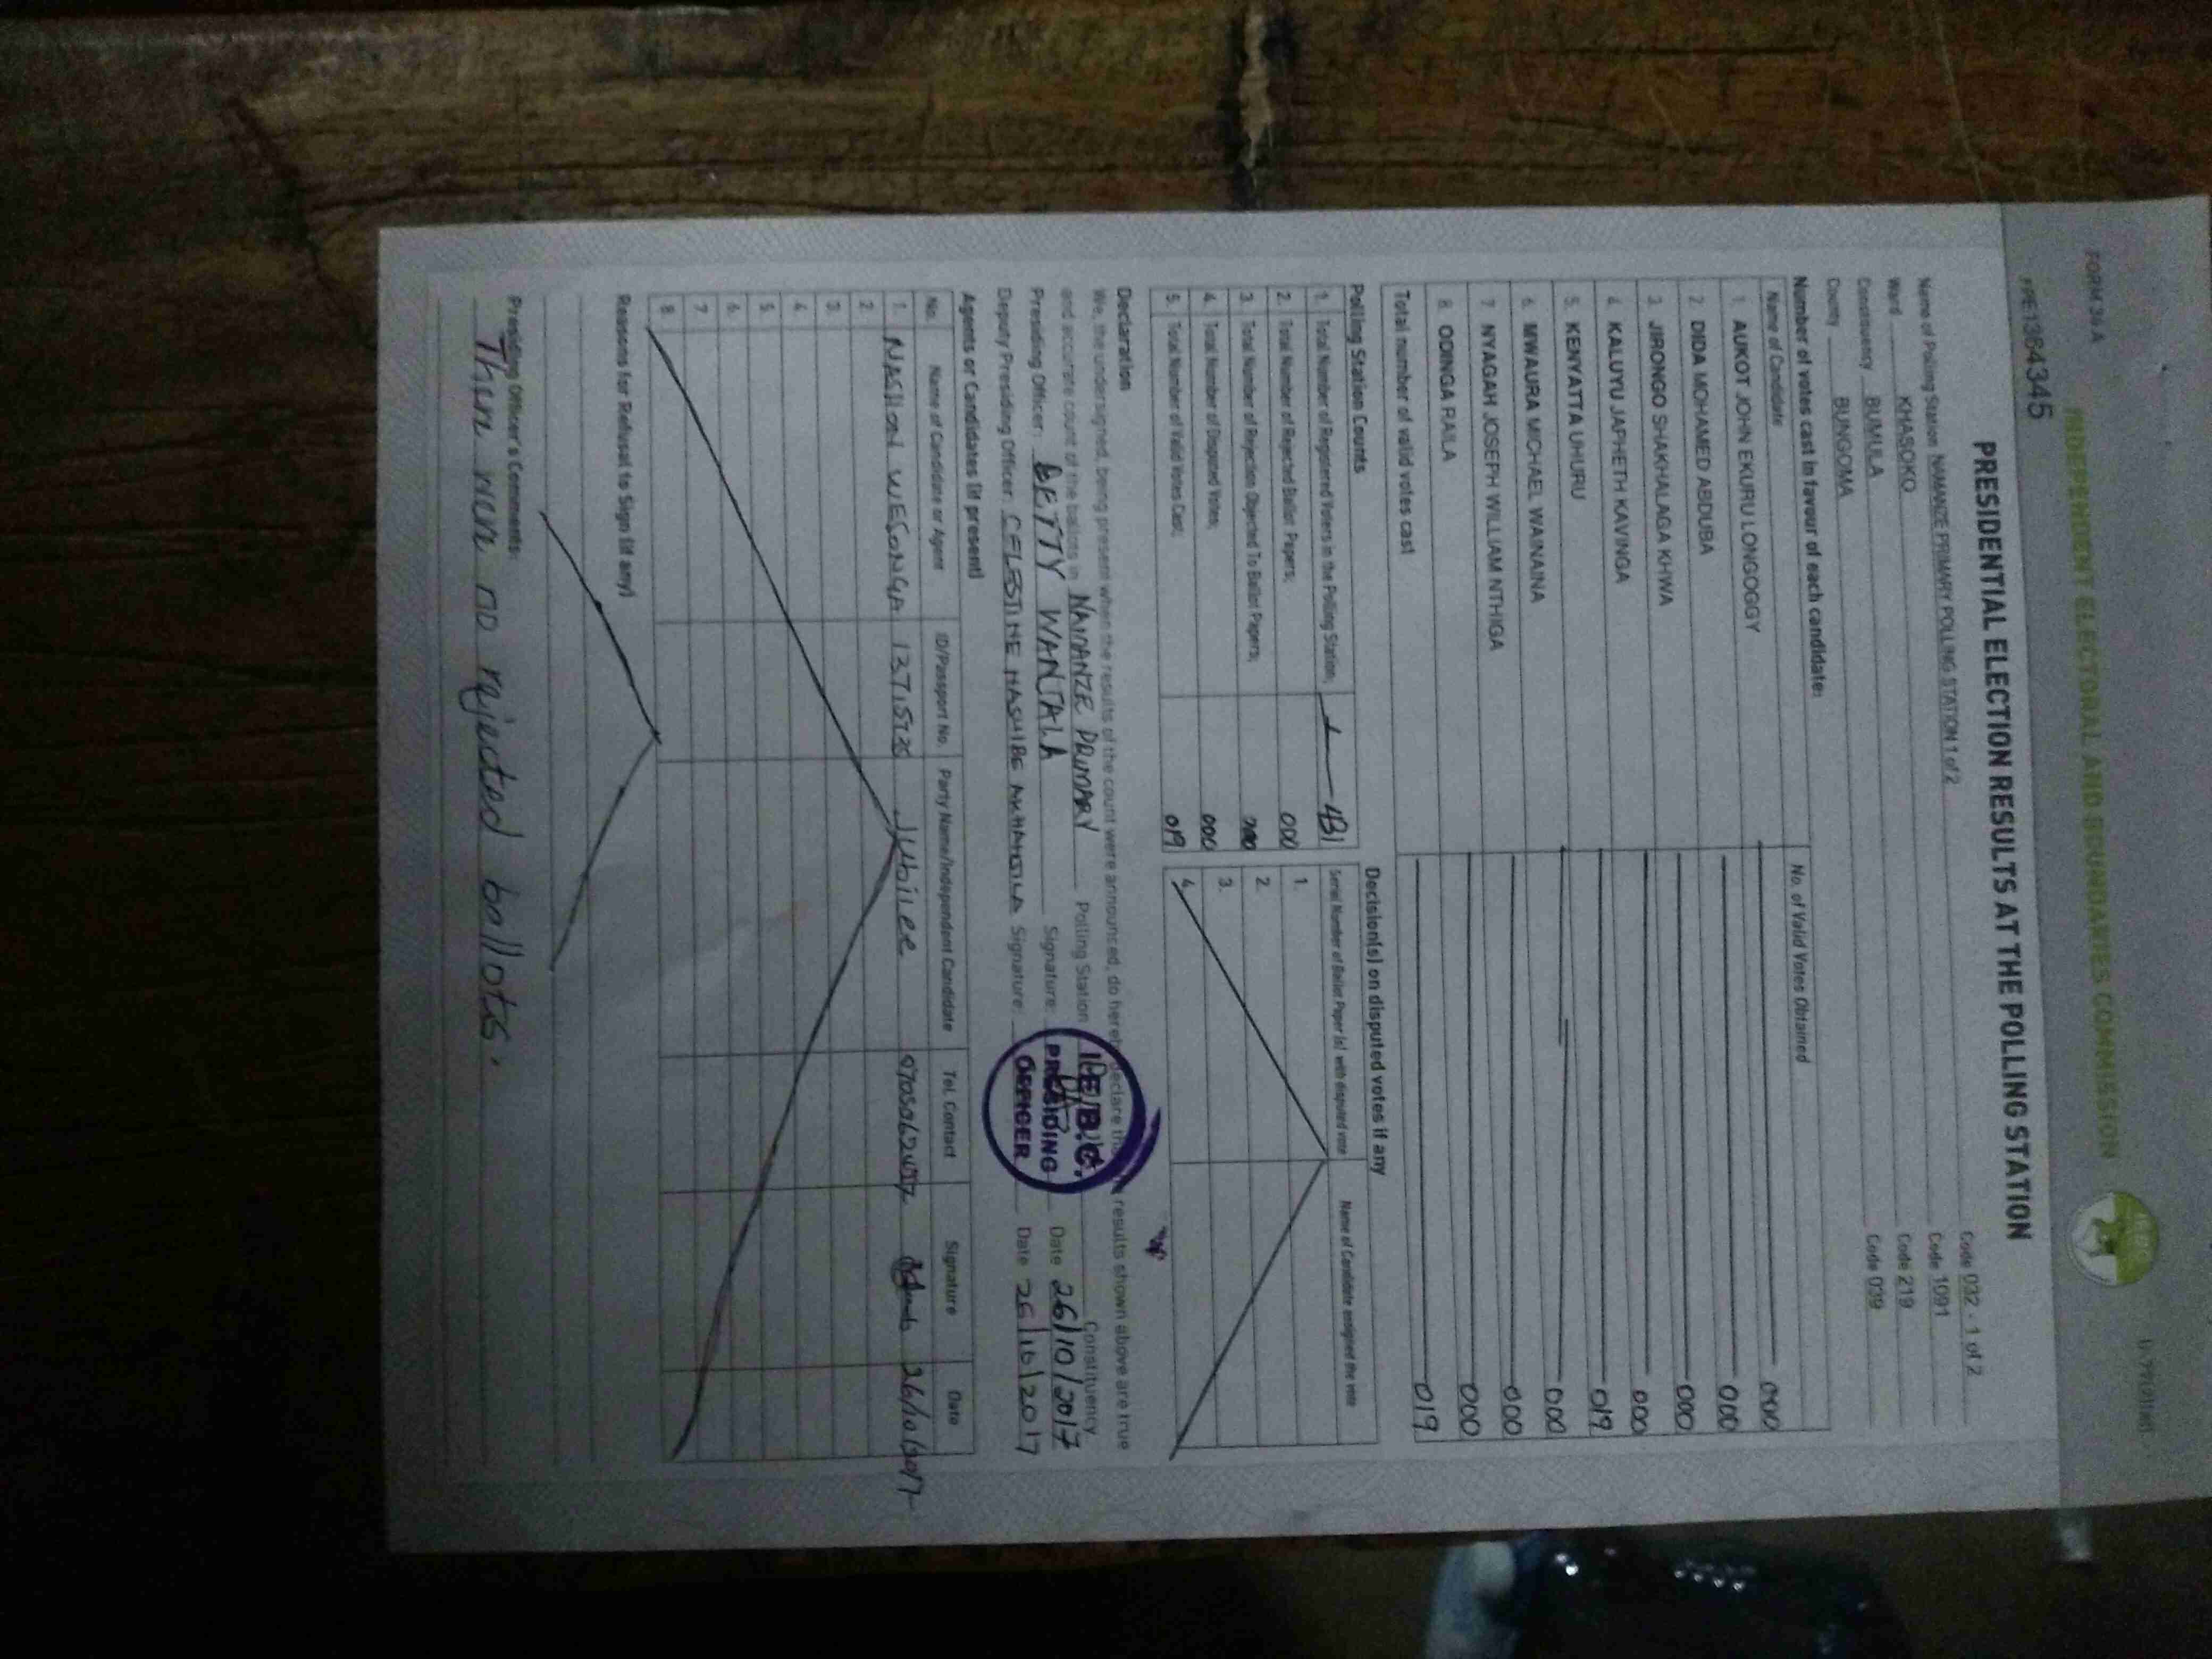 FORM 34 A
INDEPENDENT ELECTORAL AND BOUNDARIES COMMISSION
PRESIDENTIAL ELECTION RESULTS AT THE POLLING STATION
Name of Polling Station NAMANZE PRIMARY POLLING STATION 1 of 2 Code 032 - 1 of 2
Ward KHASOKO Code 1091
Constituency BUMULA Code 219
County BUNGOMA Code 039
Number of votes cast in favour of each candidate:
Name of Candidate No. of Valid Votes Obtained
1. AUKOT JOHN EKURU LONGOGGY 000
2. DIDA MOHAMED ABDUBA 000
3. JIRONGO SHAKHALAGA KHWA 000
4. KALUYU JAPHETH KAVINGA 000
5. KENYATTA UHURU 019
6. MWAURA MICHAEL WAINAINA 000
7. NYAGAH JOSEPH WILLIAM NTHIGA 000
8. ODINGA RAILA 000
Total number of valid votes cast 019
Polling Station Counts
1. Total Number of Registered Voters in the Polling Station; 431
2. Total Number of Rejected Ballot Papers; 000
3. Total Number of Rejection Objected To Ballot Papers;
4. Total Number of Disputed Votes; 000
5. Total Number of Valid Votes Cast; 019
Decision(s) on disputed votes if any
Serial Number of Ballot Paper (s) with disputed vote Name of Candidate assigned the vote
1.
2.
3.
4.
Declaration
We, the undersigned, being present when the results of the count were announced, do hereby declare that the results shown above are true
and accurate count of the ballots in NAMANZE PRIMARY Polling Station Constituency
Presiding Officer: BETTY WANJALA Signature: Date 26/10/2017
Deputy Presiding Officer: CELESTINE Signature: Date 26/10/2017
I.E.B.C.
PRESIDING
OFFICER
Agents or Candidates (if present)
No. Name of Candidate or Agent ID/Passport No. Party Name/Independent Candidate Tel. Contact Signature Date
1. WESONGA Jubilee 26/10/2017
2
3
4
5
6
7
8
Reasons for Refusal to Sign (if any)
Presiding Officer's Comments:
There were no rejected ballots.